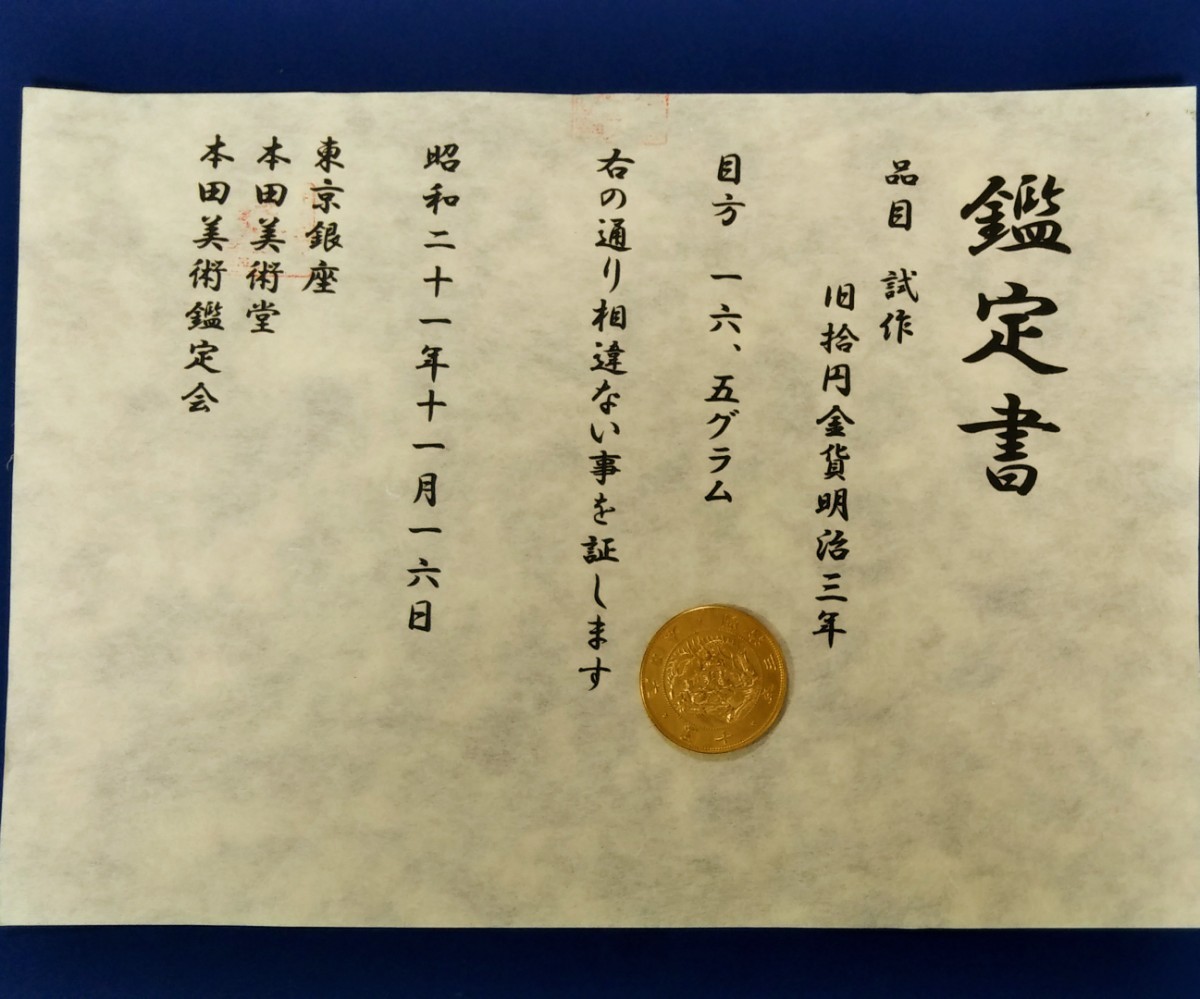 鑑定書
品目 試作
旧拾円金貨明治三年
目方 一六、五グラム
右の通り相違ない事を証します
昭和二十一年十一月一六日
東京銀座
本田美術堂
本田美術鑑定会